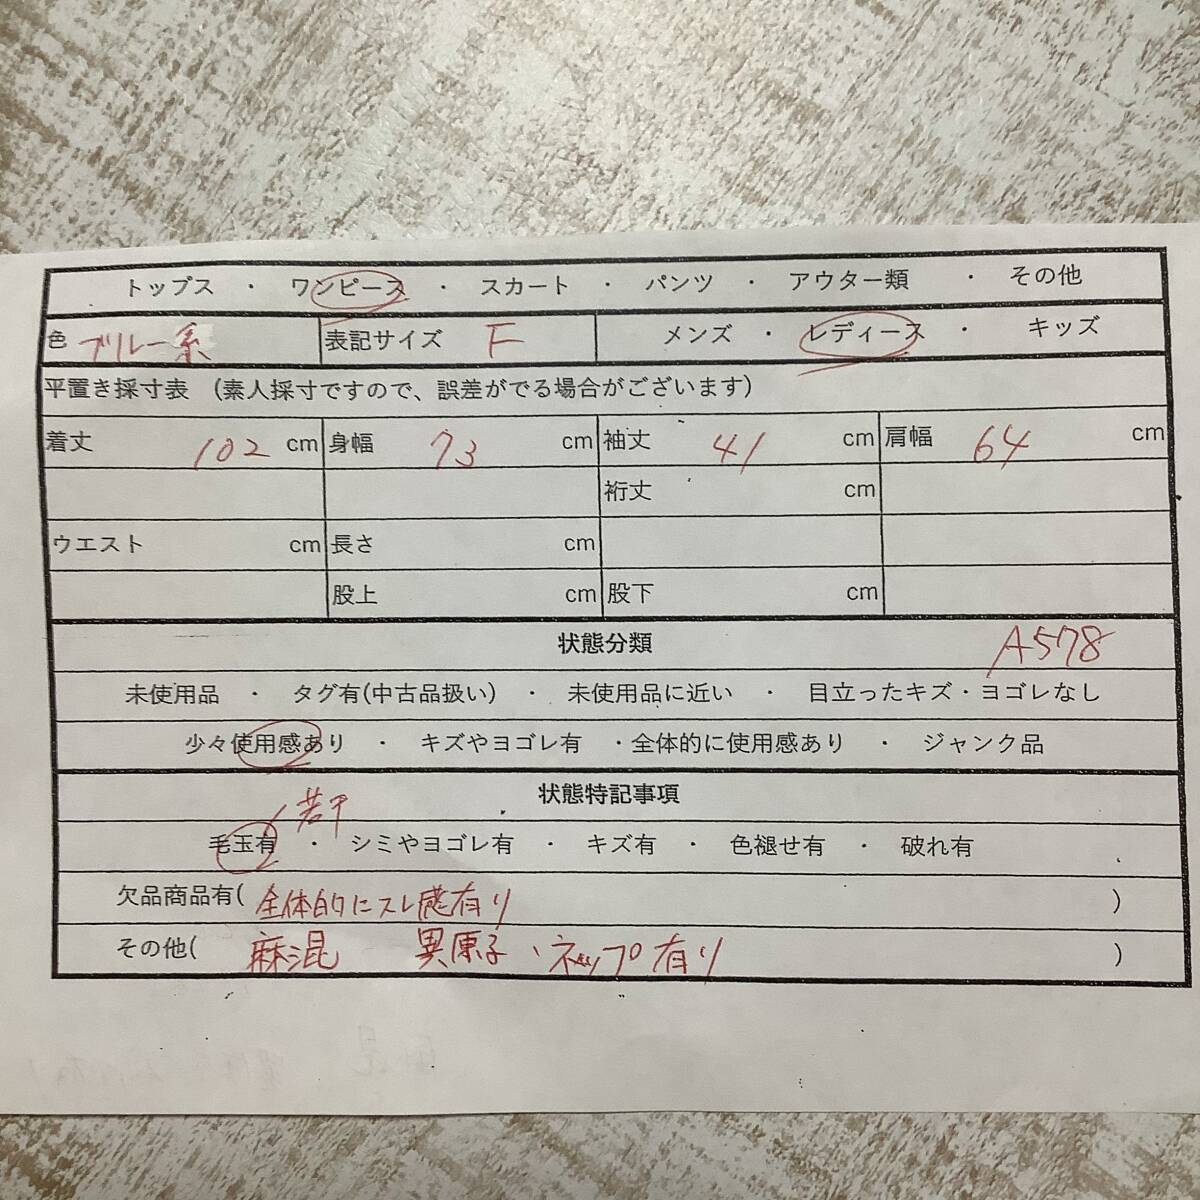 トップス ・ ワンピース ・ スカート ・ パンツ ・ アウター類 ・ その他
色 ブルー系 表記サイズ F メンズ ・ レディース ・ キッズ
平置き採寸表 (素人採寸ですので、誤差がでる場合がございます)
着丈 102 cm 身幅 73 cm 袖丈 41 cm 肩幅 64 cm
裄丈 cm
ウエスト cm 長さ cm
股上 cm 股下 cm
状態分類 A578
未使用品 ・ タグ有(中古品扱い) ・ 未使用品に近い ・ 目立ったキズ・ヨゴレなし
少々使用感あり ・ キズやヨゴレ有 ・全体的に使用感あり ・ ジャンク品
状態特記事項
若干
毛玉有 ・ シミやヨゴレ有 ・ キズ有 ・ 色褪せ有 ・ 破れ有
欠品商品有( 全体的にスレ感有り )
その他( 麻混 異原子、ネップ有り )